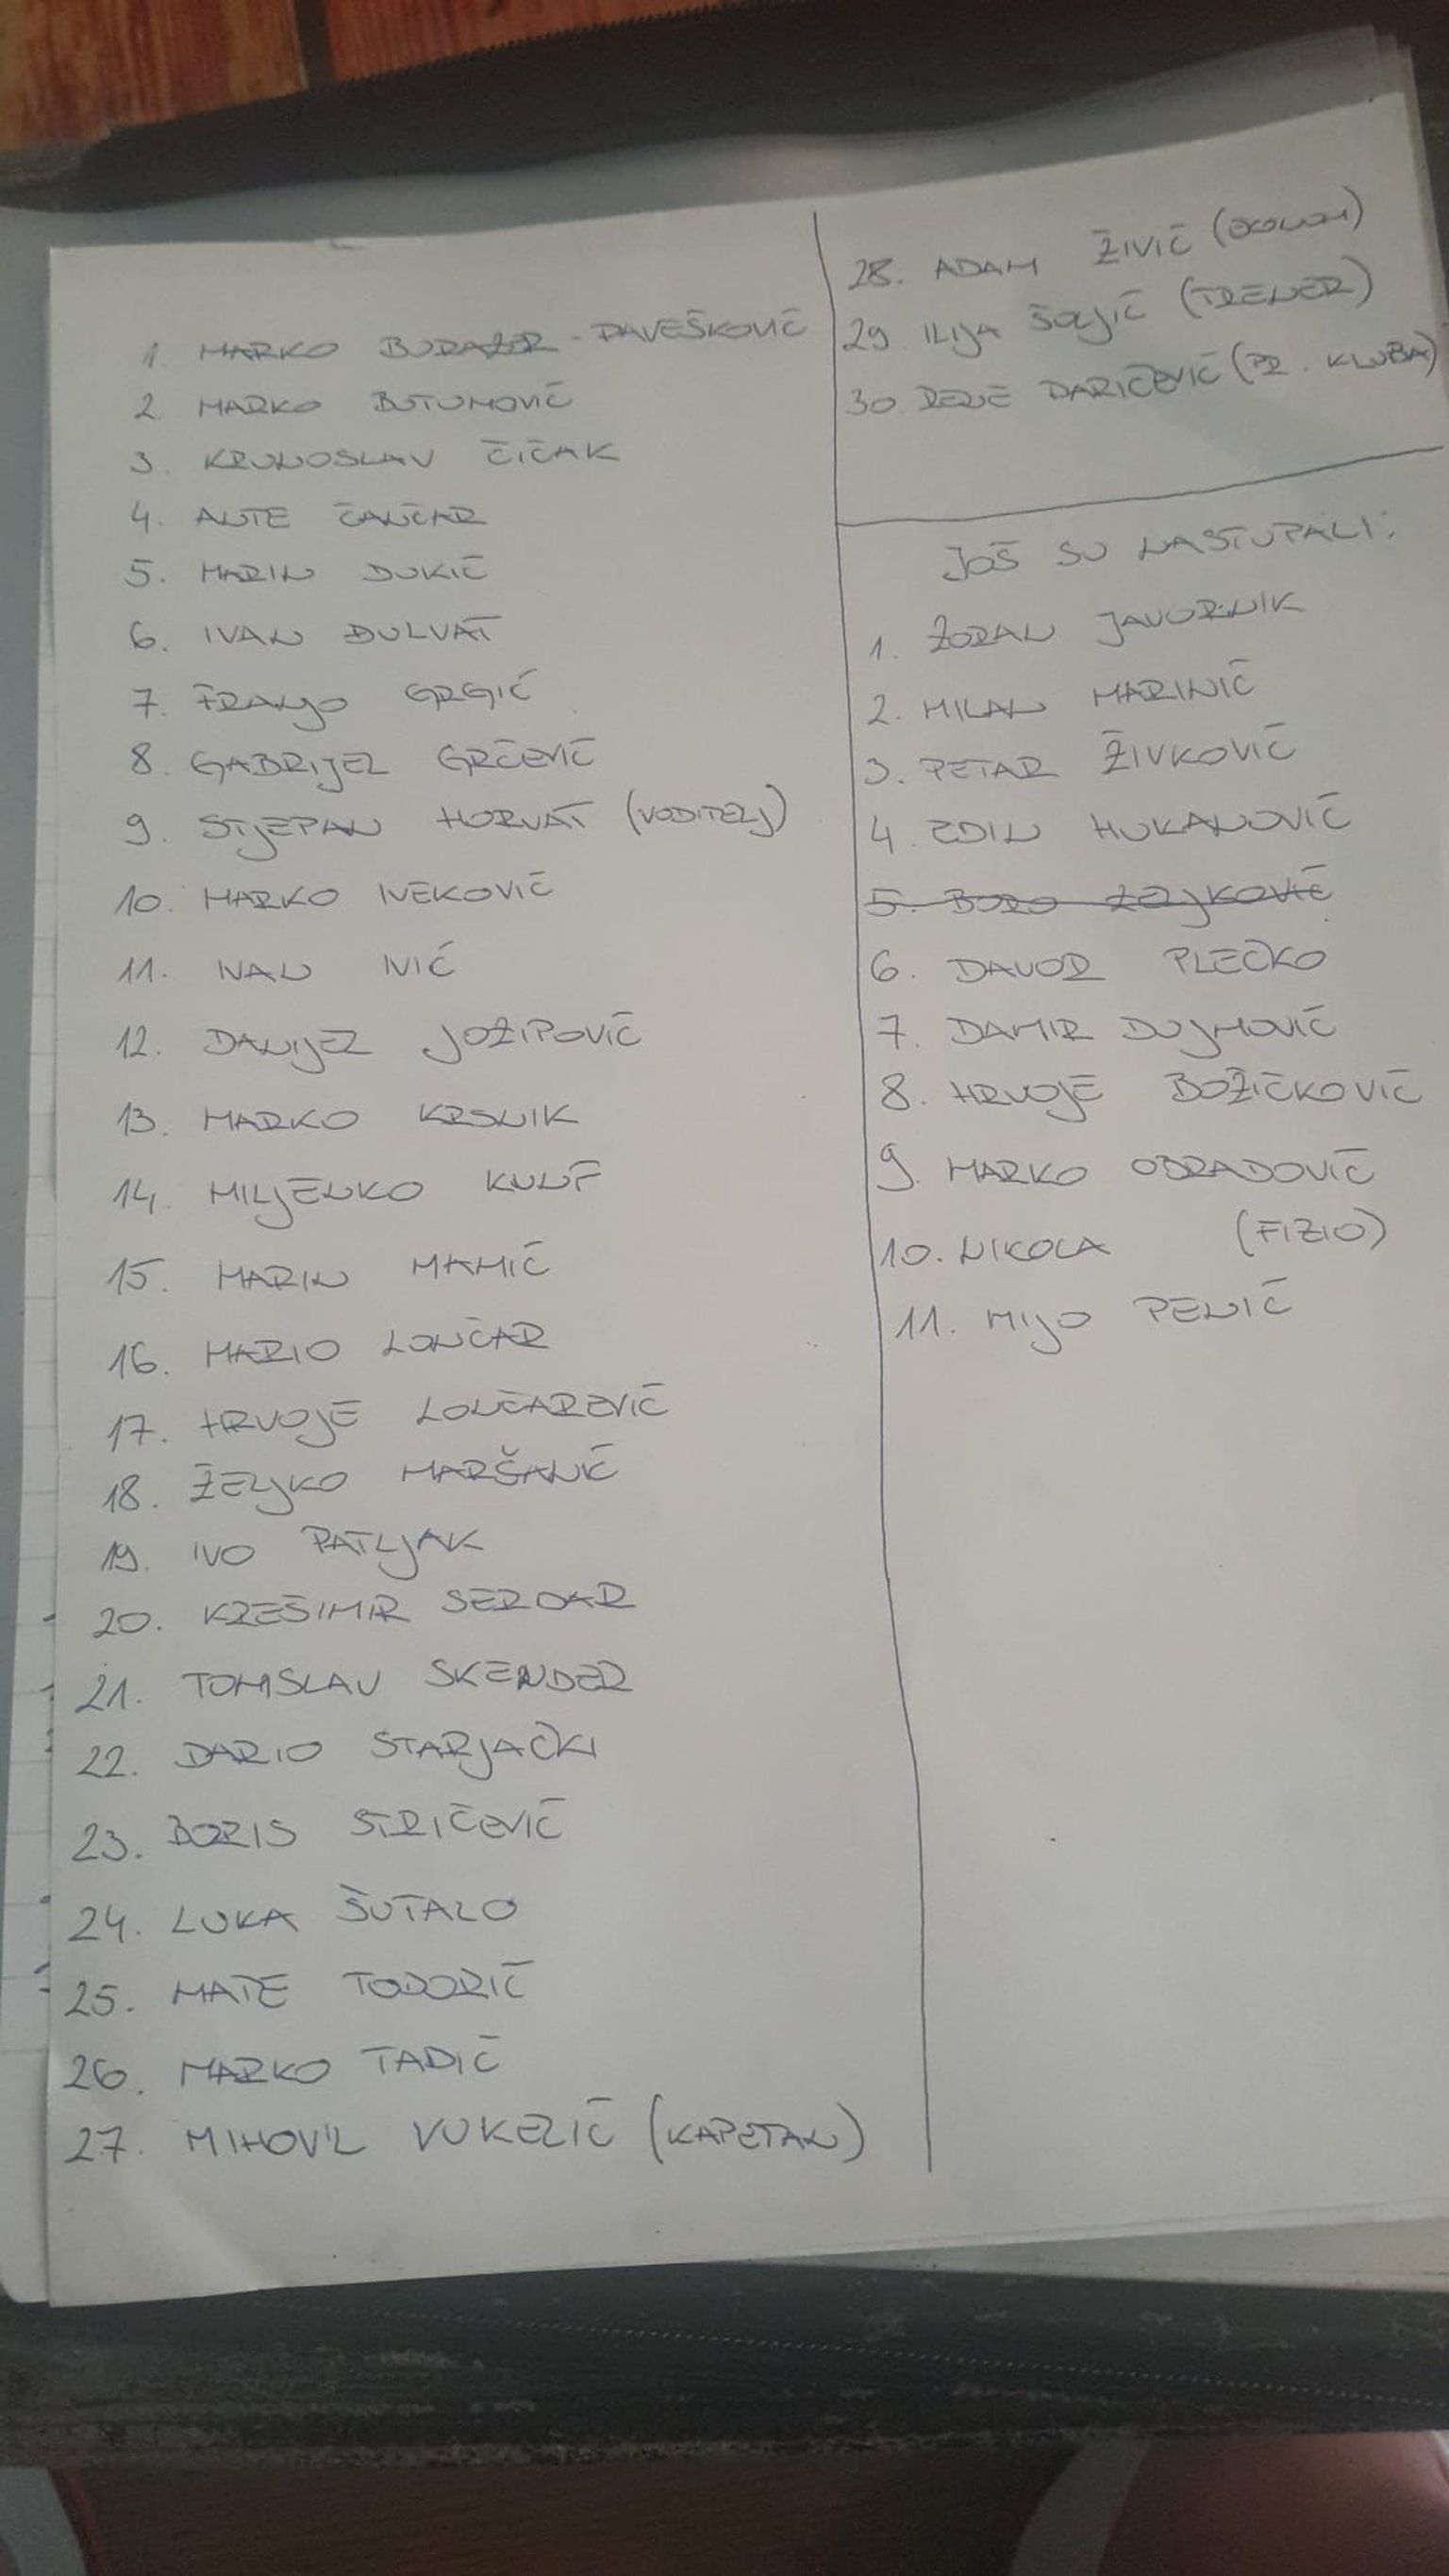 1. MARKO BURAZOR - DAVEŠKOVIĆ
2. MARKO BUTUMOVIĆ
3. KRUNOSLAV ČIČAK
4. ANTE ČANČAR
5. MARIN DUKIĆ
6. IVAN ĐULVAT
7. FRANJO GRGIĆ
8. GABRIJEL GRČEVIĆ
9. STJEPAN HORVAT (VODITELJ)
10. MARKO IVEKOVIĆ
11. IVAN IVIĆ
12. DANIJEL JOZIPOVIĆ
13. MARKO KRSNIK
14. MILJENKO KUNF
15. MARIN MAMIĆ
16. MARIO LONČAR
17. HRVOJE LONČAREVIĆ
18. ŽELJKO MARŠANIĆ
19. IVO PATLJAK
20. KREŠIMIR SERDAR
21. TOMISLAV SKENDER
22. DARIO STARJAČKI
23. BORIS SIRIČEVIĆ
24. LUKA ŠUTALO
25. MATE TODORIĆ
26. MARKO TADIĆ
27. MIHOVIL VUKELIĆ (KAPETAN)
28. ADAM ŽIVIĆ (EKONOM)
29 ILIJA ŠOLJIĆ (TRENER)
30 RENE DARIČEVIĆ (PR. KLUBA)
JOŠ SU NASTUPALI:
1. ZORAN JAVORNIK
2. MILAN MARINIĆ
3. PETAR ŽIVKOVIĆ
4. EDIN HUKANOVIĆ
5. BORO ZELJKOVIĆ
6. DAVOR PLEČKO
7. DAMIR DUJMOVIĆ
8. HRVOJE BOŽIČKOVIĆ
9. MARKO OBRADOVIĆ
10. NIKOLA (FIZIO)
11. MIJO PENIĆ